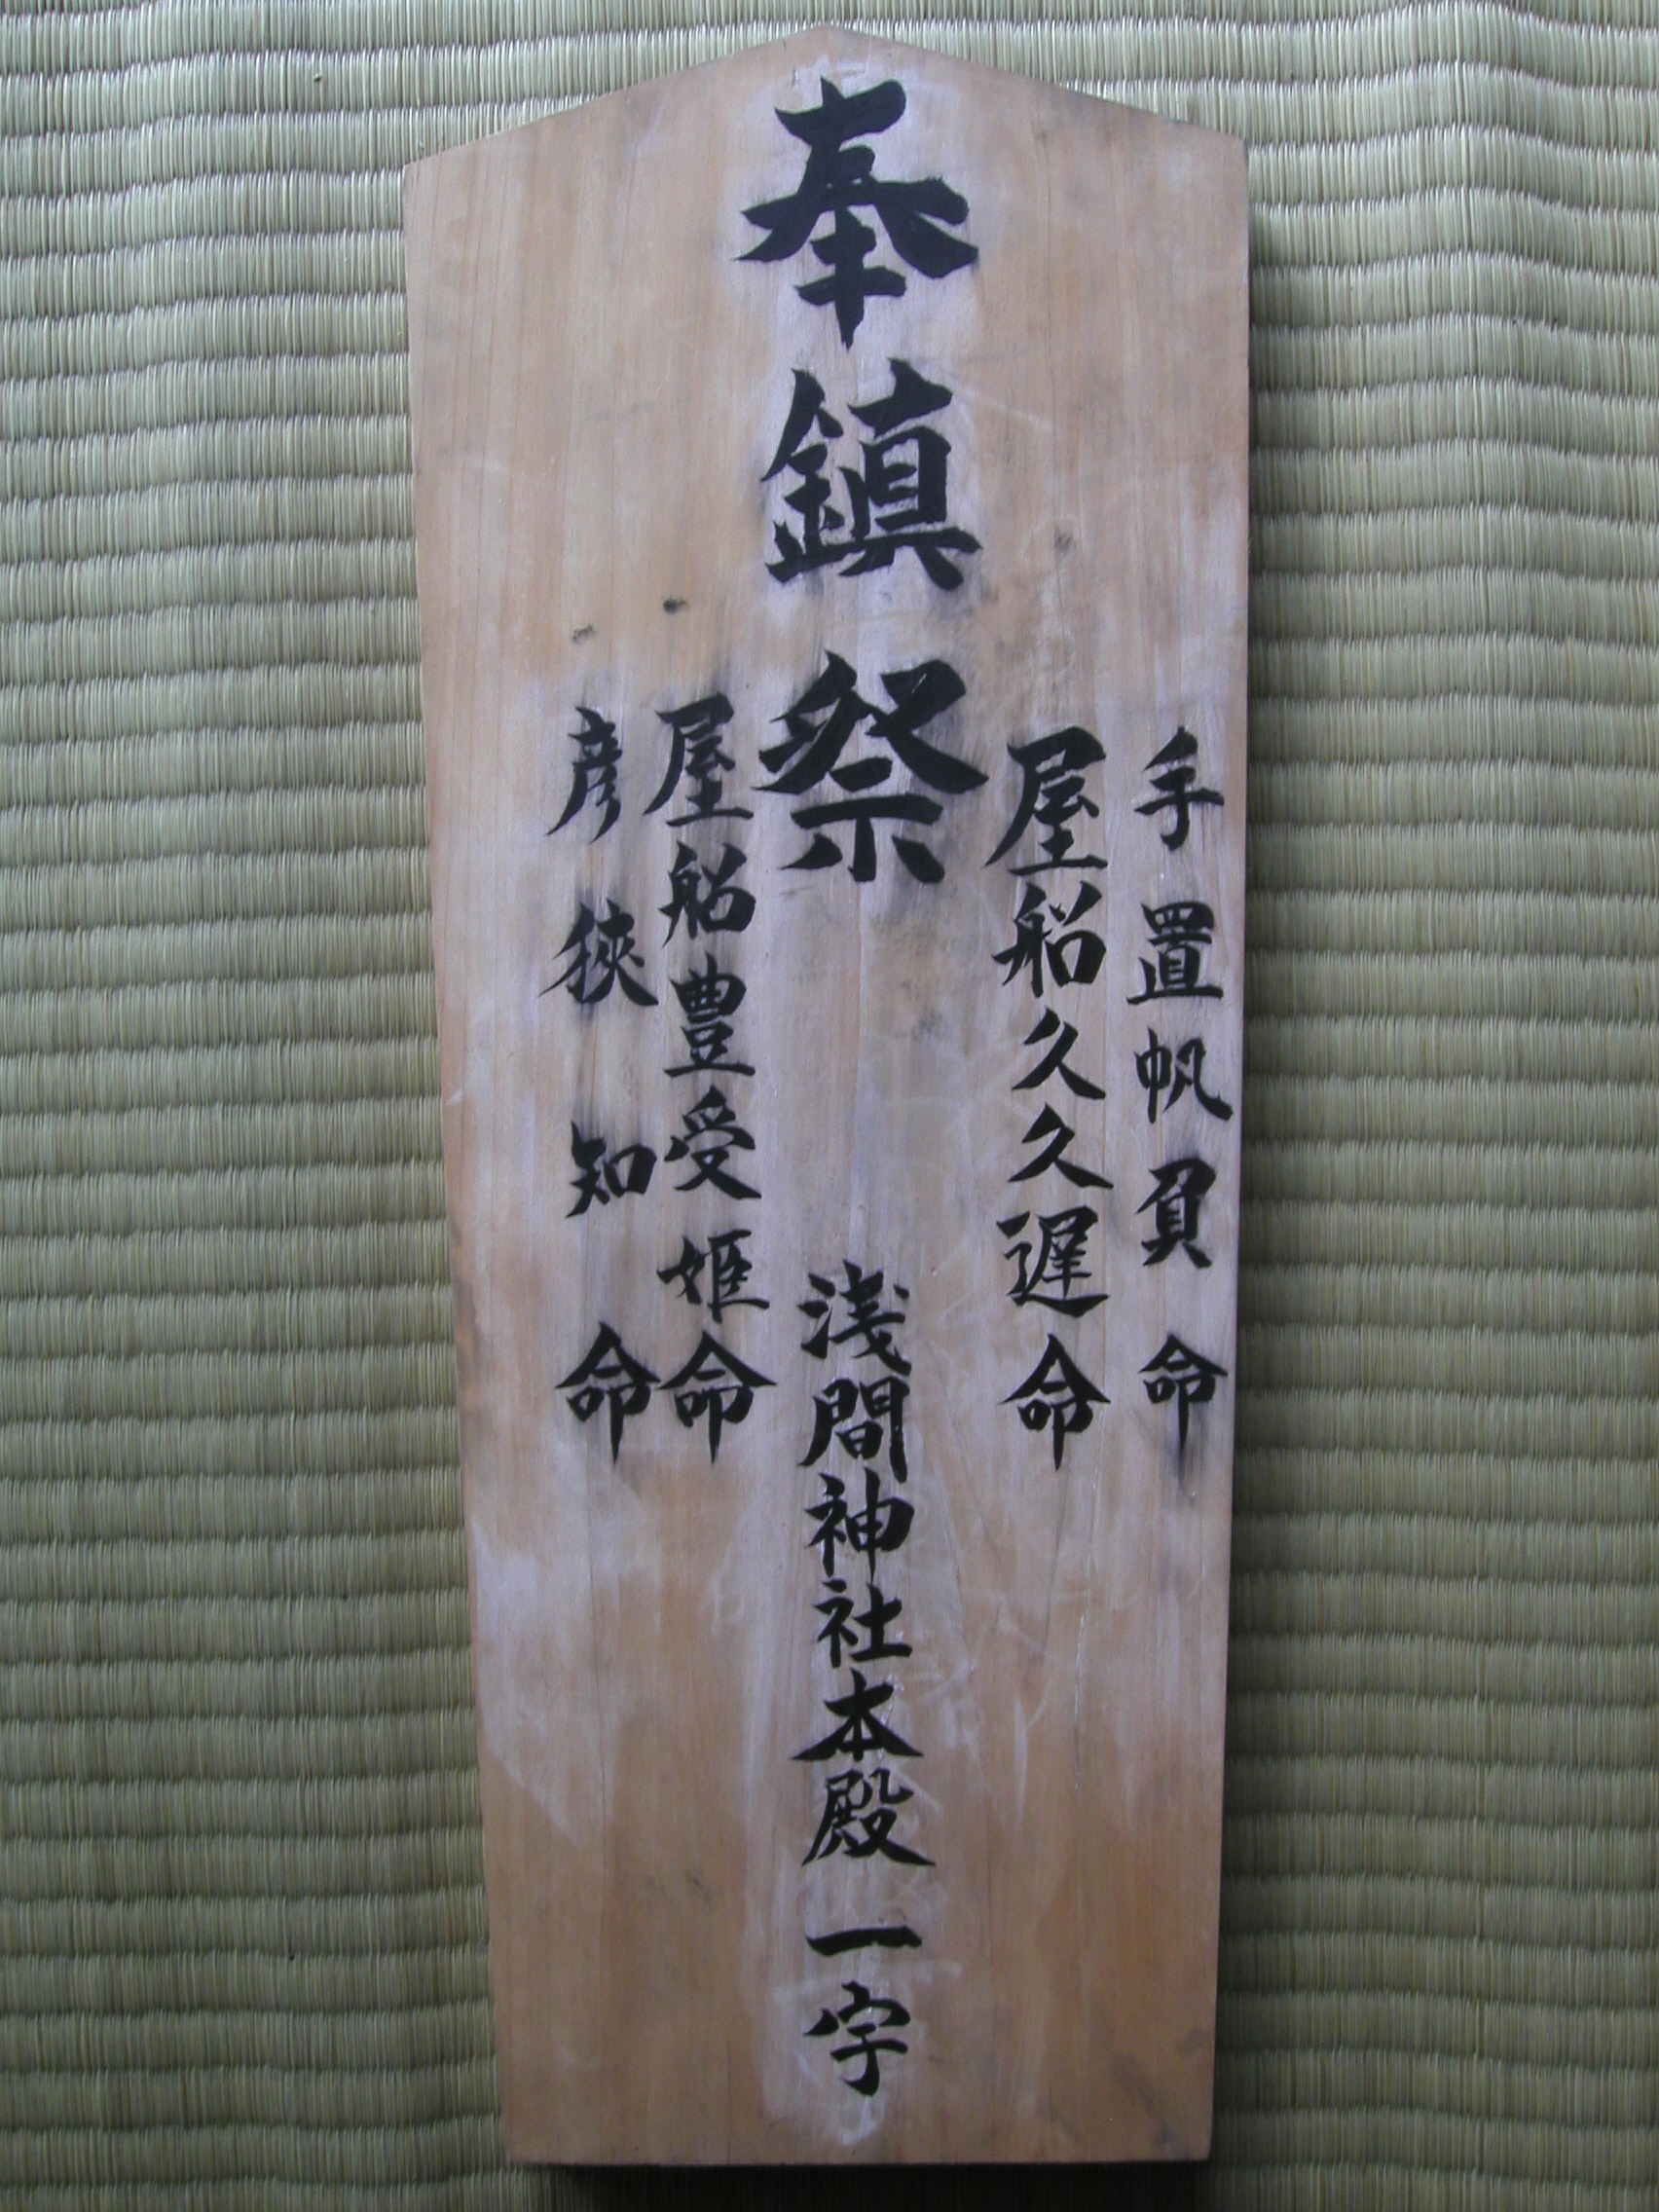 手置帆負命
屋船久久遅命
奉鎮祭
浅間神社本殿一宇
屋船豊受姫命
彦狹知命